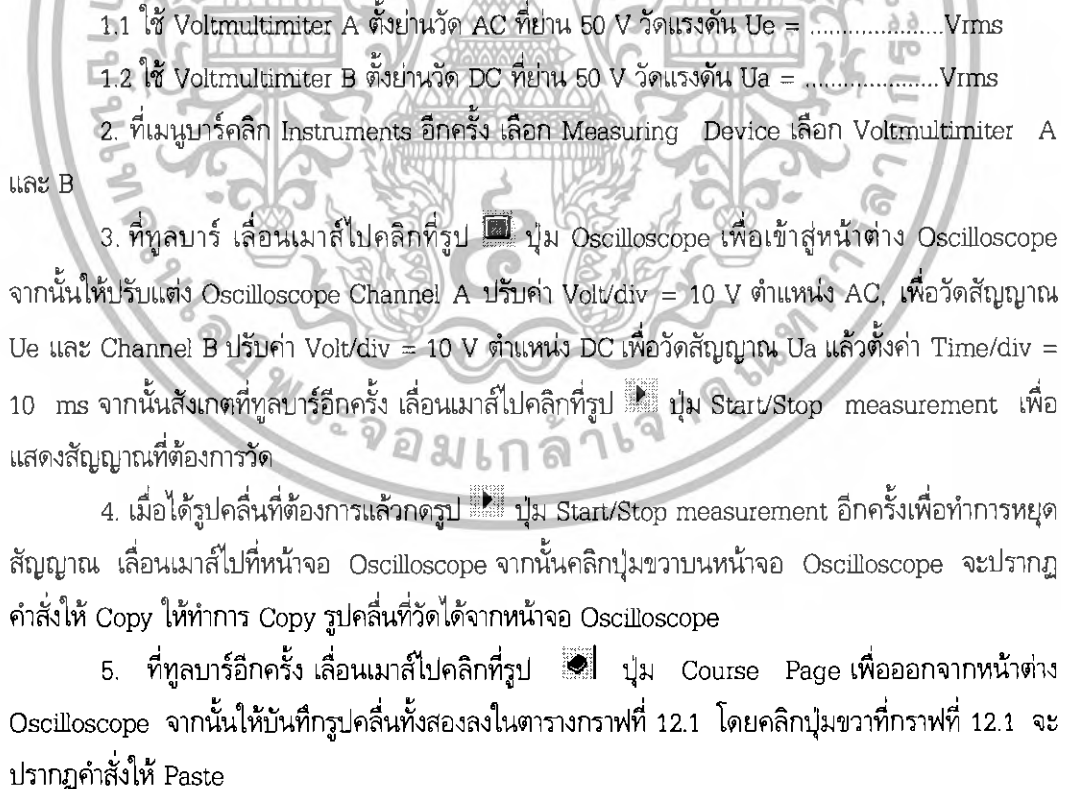 1.1 ใช้ Voltmultimiter A ตั้งย่านวัด AC ที่ย่าน 50 V วัดแรงดัน Ue = .....................Vrms
1.2 ใช้ Voltmultimiter B ตั้งย่านวัด DC ที่ย่าน 50 V วัดแรงดัน Ua = .....................Vrms
2. ที่เมนูบาร์คลิก Instruments อีกครั้ง เลือก Measuring Device เลือก Voltmultimiter A
และ B
3. ที่ทูลบาร์ เลื่อนเมาส์ไปคลิกที่รูป ปุ่ม Oscilloscope เพื่อเข้าสู่หน้าต่าง Oscilloscope
จากนั้นให้ปรับแต่ง Oscilloscope Channel A ปรับค่า Volt/div = 10 V ตำแหน่ง AC, เพื่อวัดสัญญาณ
Ue และ Channel B ปรับค่า Volt/div = 10 V ตำแหน่ง DC เพื่อวัดสัญญาณ Ua แล้วตั้งค่า Time/div =
10 ms จากนั้นสังเกตที่ทูลบาร์อีกครั้ง เลื่อนเมาส์ไปคลิกที่รูป ปุ่ม Start/Stop measurement เพื่อ
แสดงสัญญาณที่ต้องการวัด
4. เมื่อได้รูปคลื่นที่ต้องการแล้วกดรูป ปุ่ม Start/Stop measurement อีกครั้งเพื่อทำการหยุด
สัญญาณ เลื่อนเมาส์ไปที่หน้าจอ Oscilloscope จากนั้นคลิกปุ่มขวาบนหน้าจอ Oscilloscope จะปรากฏ
คำสั่งให้ Copy ให้ทำการ Copy รูปคลื่นที่วัดได้จากหน้าจอ Oscilloscope
5. ที่ทูลบาร์อีกครั้ง เลื่อนเมาส์ไปคลิกที่รูป ปุ่ม Course Page เพื่อออกจากหน้าต่าง
Oscilloscope จากนั้นให้บันทึกรูปคลื่นทั้งสองลงในตารางกราฟที่ 12.1 โดยคลิกปุ่มขวาที่กราฟที่ 12.1 จะ
ปรากฏคำสั่งให้ Paste